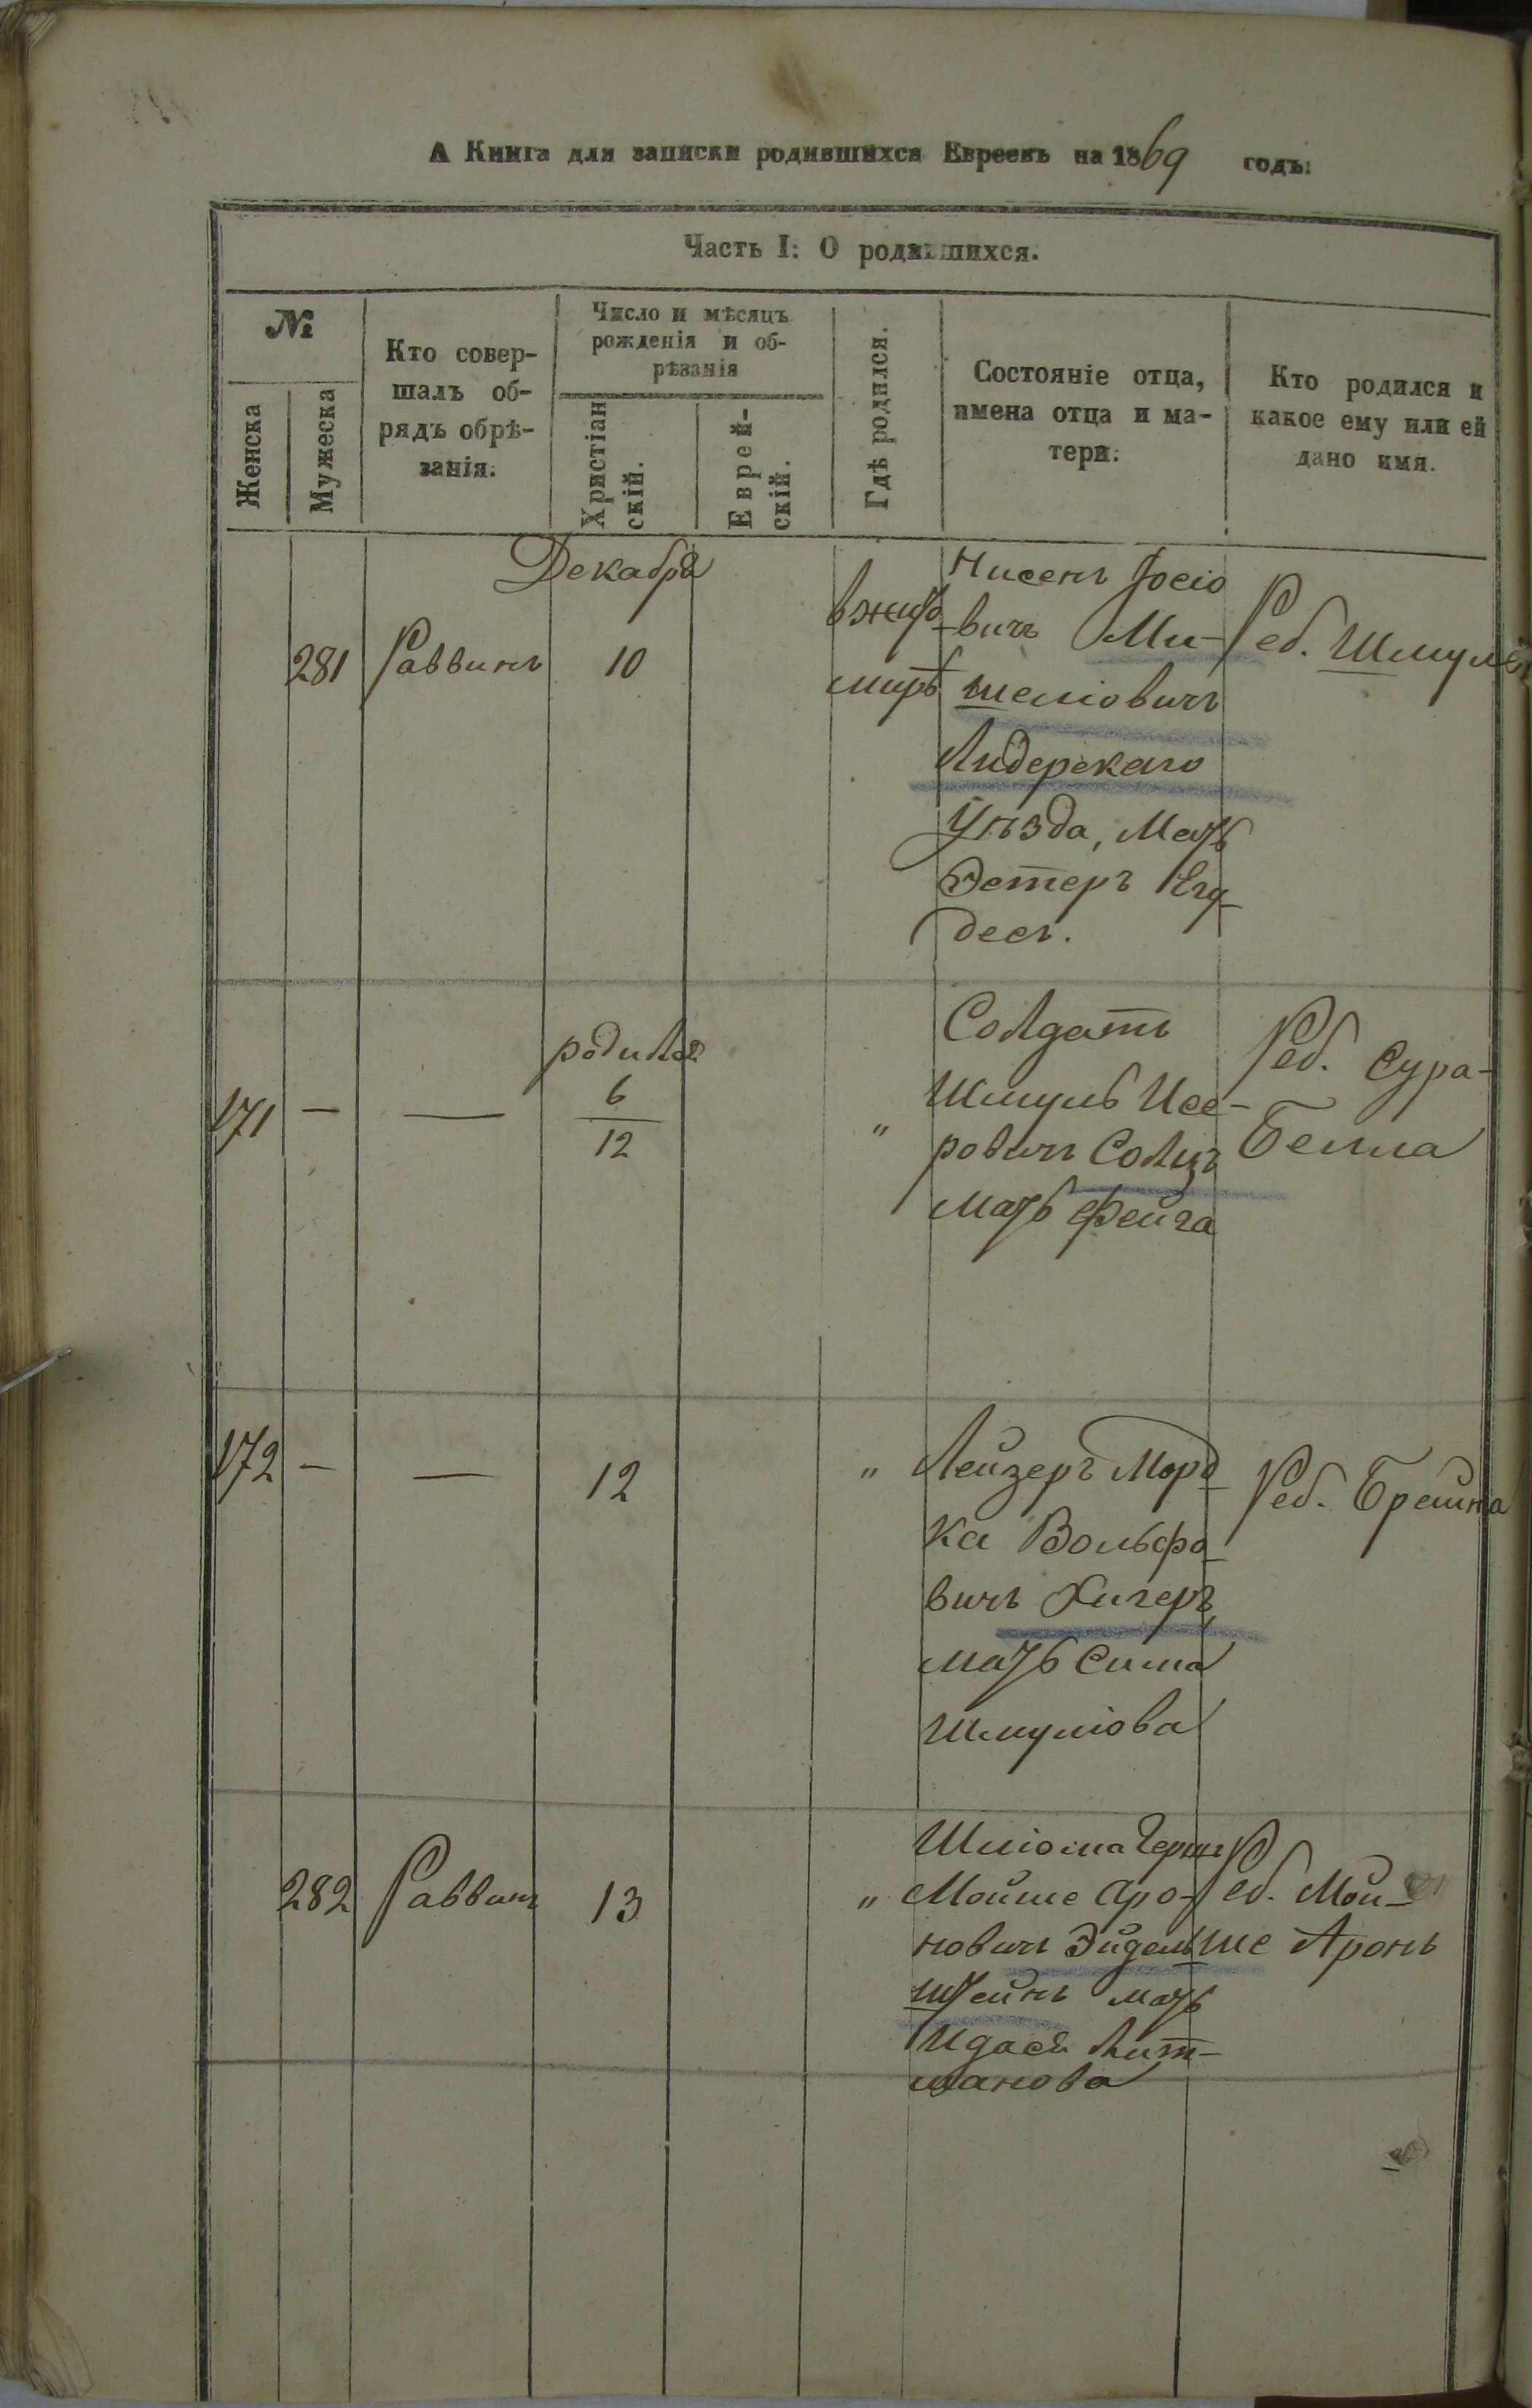 А Книга для записки родившихся Евреевъ на 1869 годъ:
Часть I: О родившихся.
№
Женска
Мужеска
Кто совер-
шалъ об-
рядъ обрѣ-
занія.
Число и мѣсяцъ
рожденія и об-
рѣзанія
Христіан
скій.
Еврей-
скій.
Гдѣ родился.
Состояніе отца,
имена отца и ма-
тери.
Кто родился и
какое ему или ей
дано имя.
Декабря
281
Раввинъ
10
в жито
мирѣ
Нисенъ Іосіо
-вичъ Ми-
шеліовичъ
Уѣзда, Мать
Эстеръ
десъ.
Реб. Шмуль
171
—
—
родилась
6
12
"
Солдатъ
Шмуль Исе-
ровичъ Солцъ
мать Фейга
Реб. Сура-
Бейла
172
—
—
12
"
Лейзеръ Морд
ка Вольфо-
вичъ Хигеръ,
мать Сима
Шмуліова
Реб. Брейна
282
Раввинъ
13
"
Шліома Герш
Мойше Аро-
новичъ Эйдель
штейнъ мать
Идася Лит-
манова
Реб. Мой-
ше Аронъ